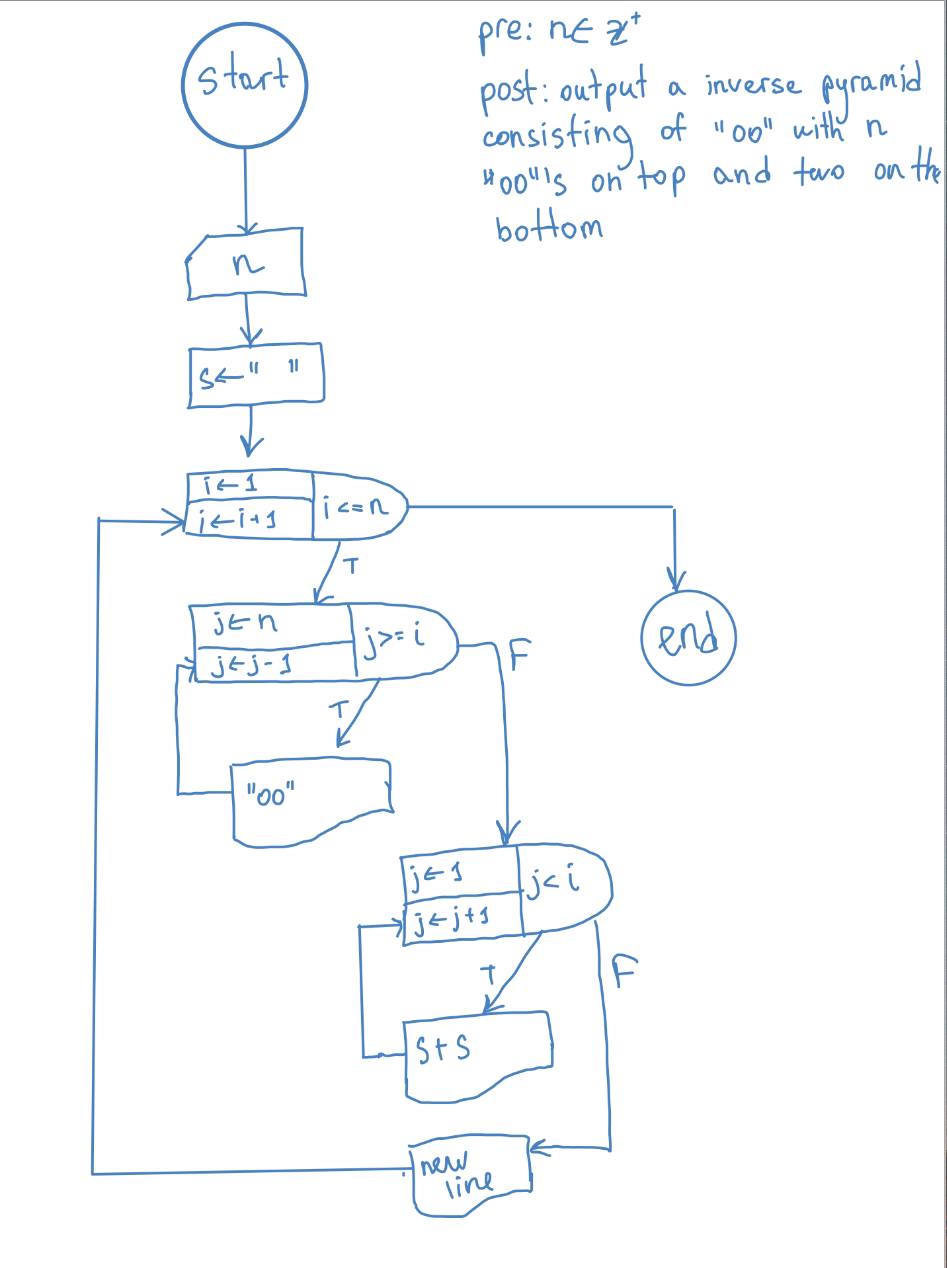 start
pre: n∈ Z⁺
post: output a inverse pyramid
consisting of "oo" with n
"oo"'s on top and two on the
bottom
n
s←" "
i←1
i←i+1
i<=n
T
j←n
j←j-1
j>=i
F
end
T
"oo"
j←1
j←j+1
j<i
T
F
S+S
new
line